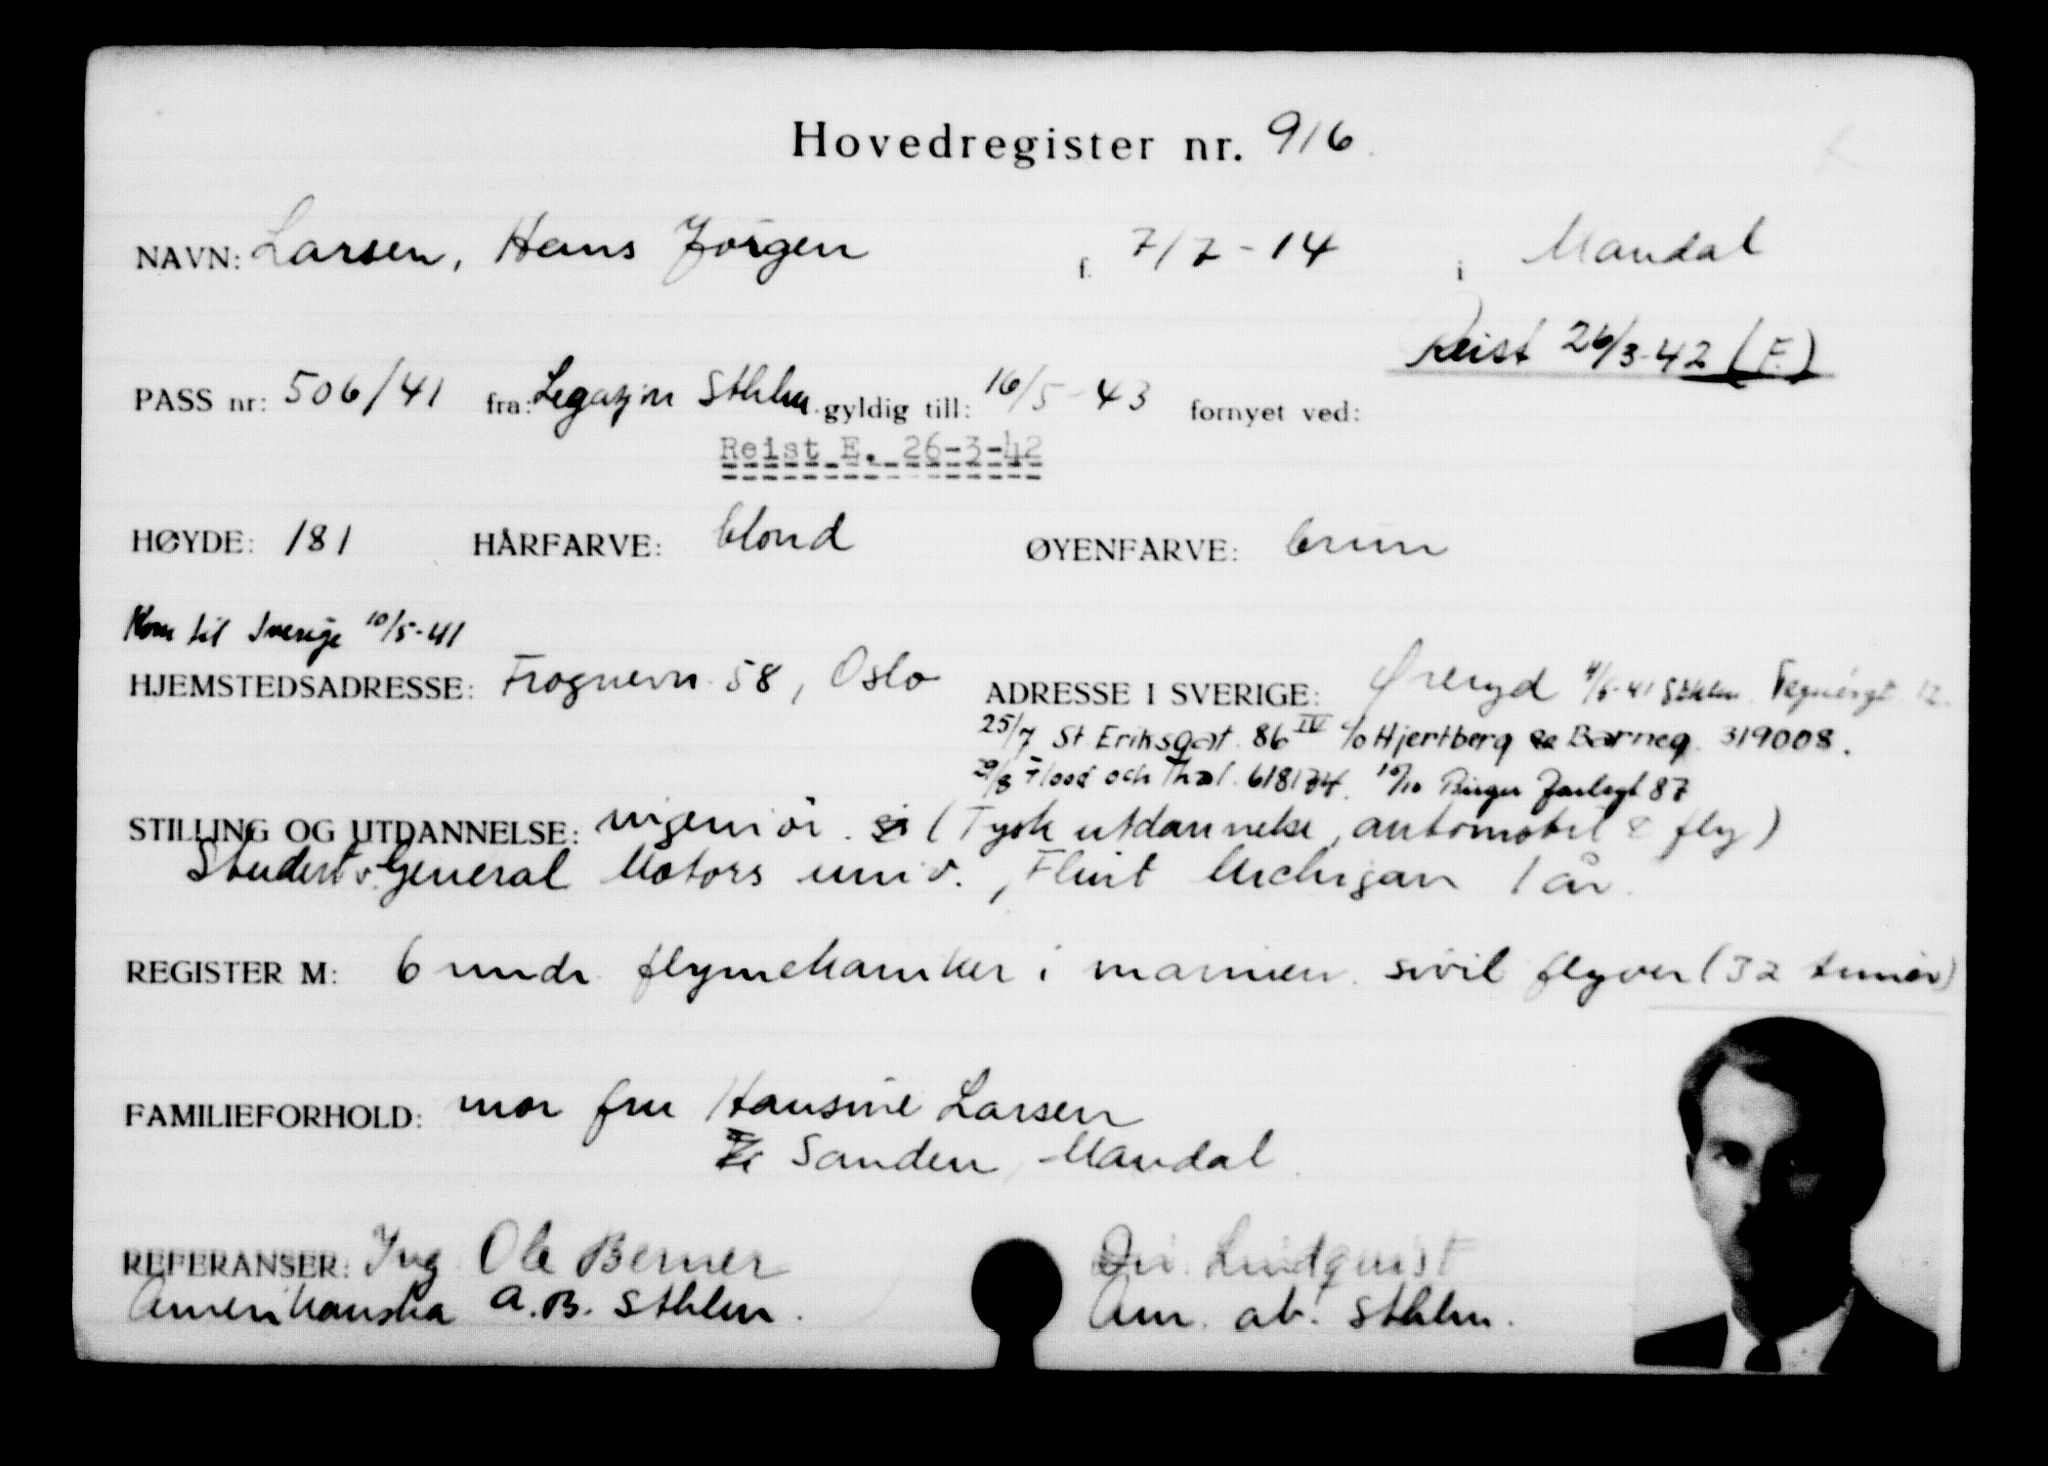 Hovedregister nr. 916
NAVN: Larsen, Hans Jörgen f. 7/7-14 i Mandal
Reist 26/3-42 (F.)
PASS nr: 506/41 fra: Legasjon Sthlm. gyldig till: 16/5-43 fornyet ved:
Reist E. 26-3-42
HØYDE: 181 HÅRFARVE: blond ØYENFARVE: brun
Kom til Sverige 10/5-41
HJEMSTEDSADRESSE: Frognervn. 58, Oslo ADRESSE I SVERIGE: Øreryd Sthlm. Tegnérgt. 12.
25/7 St. Eriksgat. 86 IV c/o Hjertberg Barneg. 319008.
29/8 Flood och Thal. 618174. 10/10 Birger Jarlsgt 87
STILLING OG UTDANNELSE: ingeniör. (Tysk utdannelse, automobil & fly)
Student v. General Motors univ., Flint Michigan 1 år.
REGISTER M: 6 mndr. flymekaniker i marinen. sivil flyver (32 timer)
FAMILIEFORHOLD: mor fru Hansine Larsen
Sanden, Mandal.
REFERANSER: Ing. Ole Berner Lindquist
Amerikanska A.B. Sthlm. Am. ab. Sthlm.